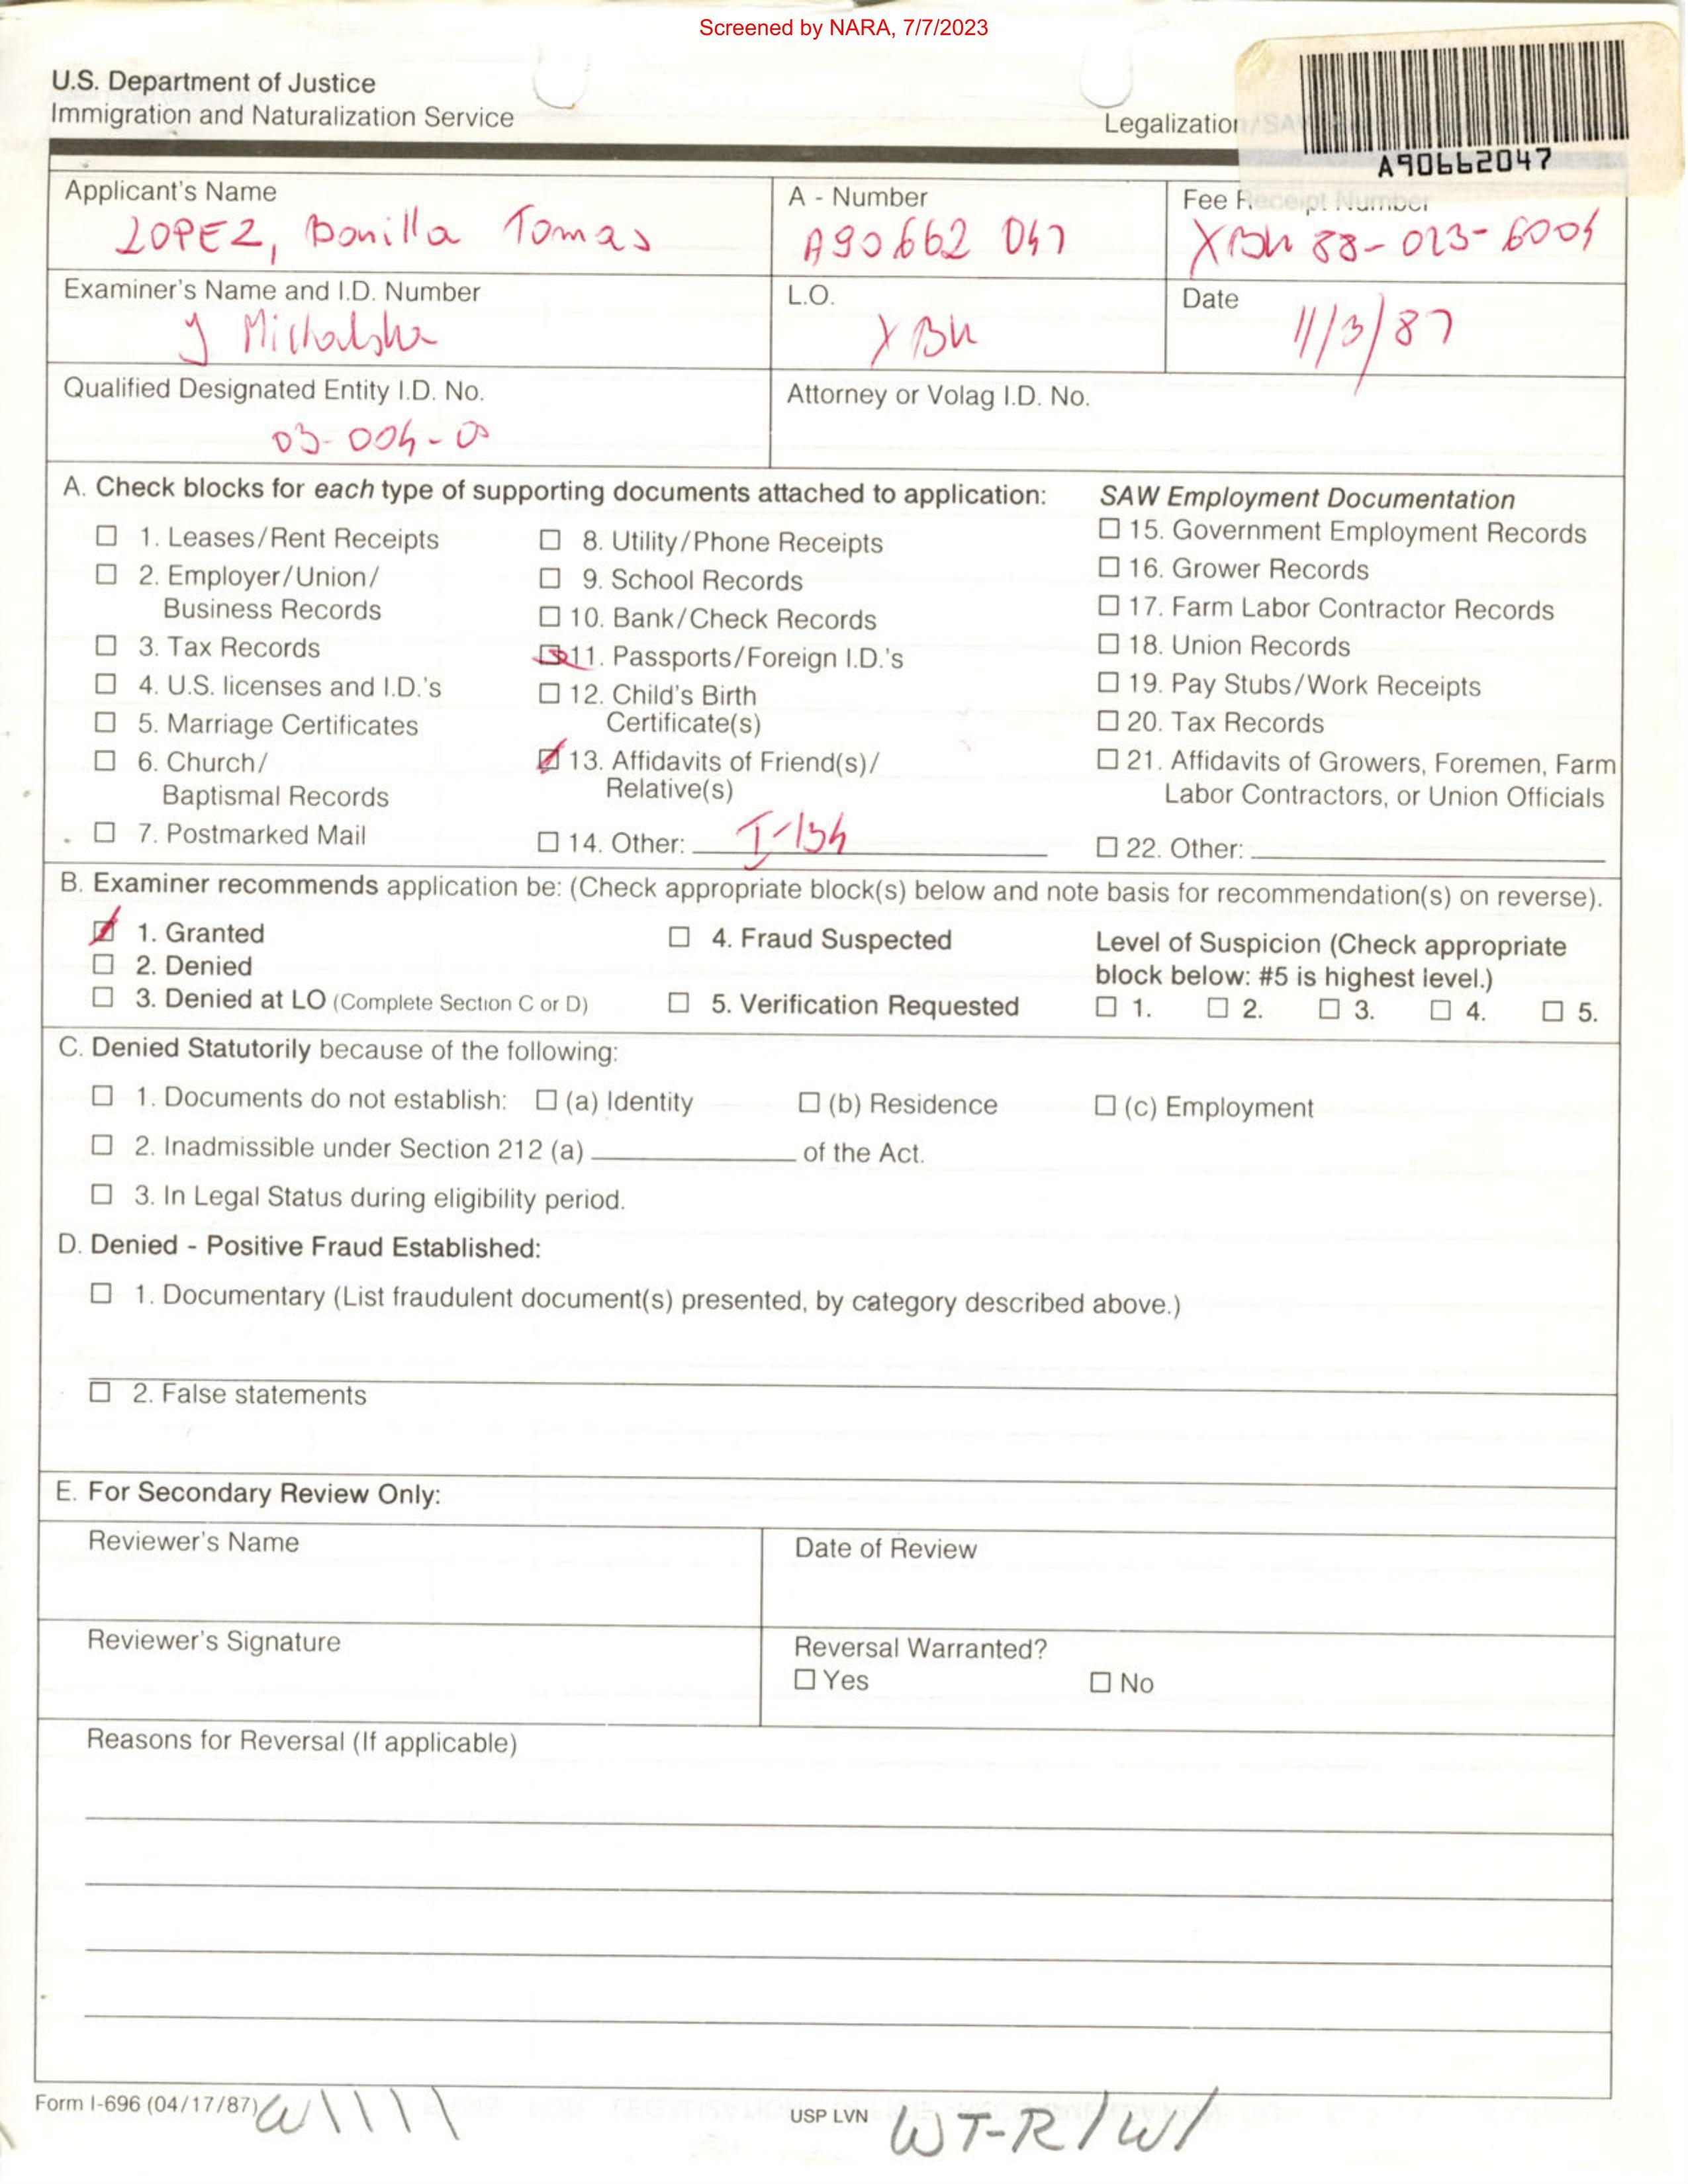 Screened by NARA, 7/7/2023
U.S. Department of Justice
Immigration and Naturalization Service
Legalization/SA
A90662047
Applicant's Name
LOPEZ, Bonilla Tomas
A - Number
A90662 047
Fee Receipt Number
XBH 88-023-6004
Examiner's Name and I.D. Number
J
L.O.
XBH
Date
11/3/87
Qualified Designated Entity I.D. No.
03-004-
Attorney or Volag I.D. No.
A. Check blocks for each type of supporting documents attached to application:
☐ 1. Leases/Rent Receipts
☐ 2. Employer/Union/
Business Records
☐ 3. Tax Records
☐ 4. U.S. licenses and I.D.'s
☐ 5. Marriage Certificates
☐ 6. Church/
Baptismal Records
☐ 7. Postmarked Mail
☐ 8. Utility/Phone Receipts
☐ 9. School Records
☐ 10. Bank/Check Records
☒ 11. Passports/Foreign I.D.'s
☐ 12. Child's Birth
Certificate(s)
☒ 13. Affidavits of Friend(s)/
Relative(s)
☐ 14. Other: I-134
SAW Employment Documentation
☐ 15. Government Employment Records
☐ 16. Grower Records
☐ 17. Farm Labor Contractor Records
☐ 18. Union Records
☐ 19. Pay Stubs/Work Receipts
☐ 20. Tax Records
☐ 21. Affidavits of Growers, Foremen, Farm
Labor Contractors, or Union Officials
☐ 22. Other:
B. Examiner recommends application be: (Check appropriate block(s) below and note basis for recommendation(s) on reverse).
☒ 1. Granted
☐ 2. Denied
☐ 3. Denied at LO (Complete Section C or D)
☐ 4. Fraud Suspected
☐ 5. Verification Requested
Level of Suspicion (Check appropriate
block below: #5 is highest level.)
☐ 1. ☐ 2. ☐ 3. ☐ 4. ☐ 5.
C. Denied Statutorily because of the following:
☐ 1. Documents do not establish: ☐ (a) Identity ☐ (b) Residence ☐ (c) Employment
☐ 2. Inadmissible under Section 212 (a) of the Act.
☐ 3. In Legal Status during eligibility period.
D. Denied - Positive Fraud Established:
☐ 1. Documentary (List fraudulent document(s) presented, by category described above.)
☐ 2. False statements
E. For Secondary Review Only:
Reviewer's Name
Date of Review
Reviewer's Signature
Reversal Warranted?
☐ Yes ☐ No
Reasons for Reversal (If applicable)
Form I-696 (04/17/87)
USP LVN
WT-R/W/